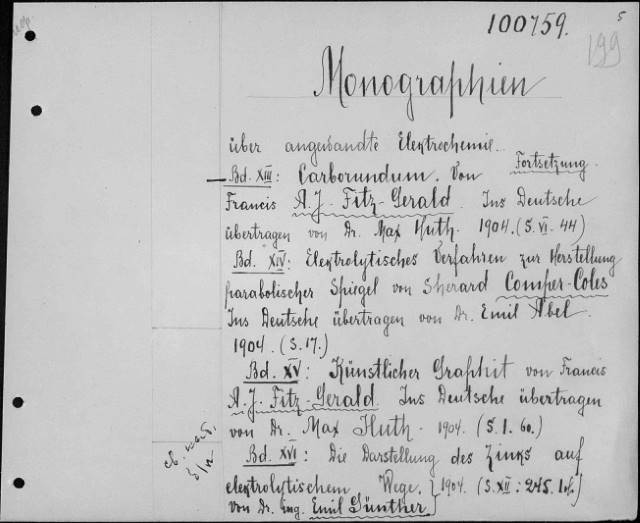 100759.
5
199
Monographien
über angewandte Elektrochemie.
Fortsetzung.
Bd. XIII: Carborundum. Von
Francis A. J. Fitz-Gerald. Ins Deutsche
übertragen von Dr. Max Huth. 1904. (S. VI. 44)
Bd. XIV: Elektrolytisches Verfahren zur Herstellung
parabolischer Spiegel von Sherard Comper-Coles
Ins Deutsche übertragen von Dr. Emil Abel.
1904. (S. 17.)
Bd. XV: Künstlicher Graphit von Francis
A. J. Fitz-Gerald. Ins Deutsche übertragen
von Dr. Max Huth. 1904. (S. 1. 60.)
Bd. XVI: Die Darstellung des Zinks auf
elektrolytischem Wege. } 1904. (S. XII: 245. 1.)
von Dr. Ing. Emil Günther}